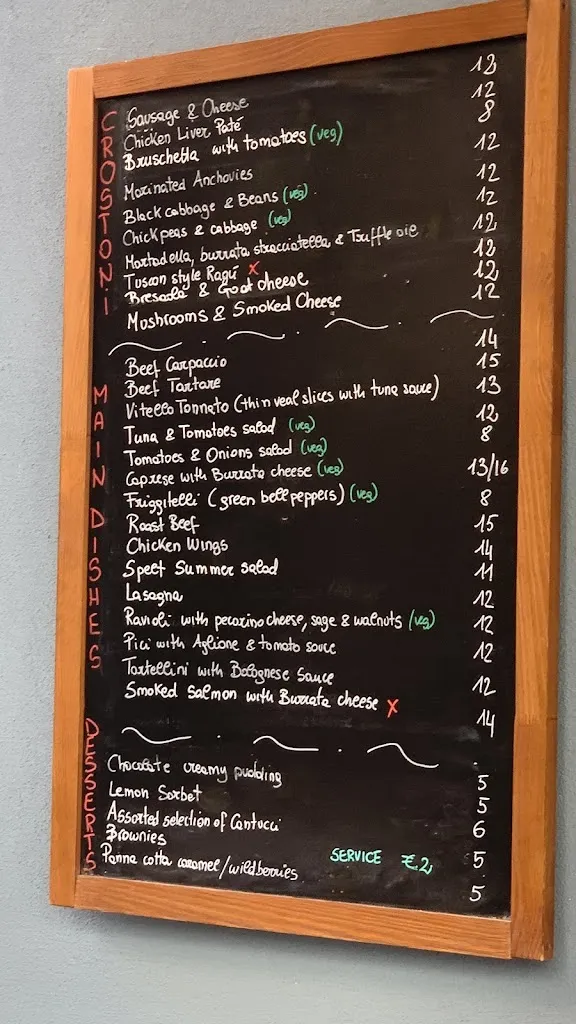 CROSTONI
Sausage & Cheese 13
Chicken Liver Patè 12
Bruschetta with tomatoes (veg) 8
Marinated Anchovies 12
Black cabbage & Beans (veg) 12
Chickpeas & cabbage (veg) 12
Mortadella, burrata stracciatella & Truffle oie 12
Tuscan style Ragù x 12
Bresaola & Goat cheese 12
Mushrooms & Smoked Cheese 12
MAIN DISHES
Beef Carpaccio 14
Beef Tartare 15
Vitello Tonnato (thin veal slices with tuna sauce) 13
Tuna & Tomatoes salad (veg) 12
Tomatoes & Onions salad (veg) 8
Caprese with Burrata cheese (veg) 13/16
Friggitelli (green bell peppers) (veg) 8
Roast Beef 15
Chicken Wings 14
Spelt Summer salad 11
Lasagna 12
Ravioli with pecorino cheese, sage & walnuts (veg) 12
Pici with Aglione & tomato sauce 12
Tortellini with Bolognese Sauce 12
Smoked Salmon with Burrata cheese x 14
DESSERTS
Chocolate creamy pudding 5
Lemon Sorbet 5
Assorted selection of Cantucci 6
Brownies 5
Panna cotta caramel/wildberries 5
SERVICE €2